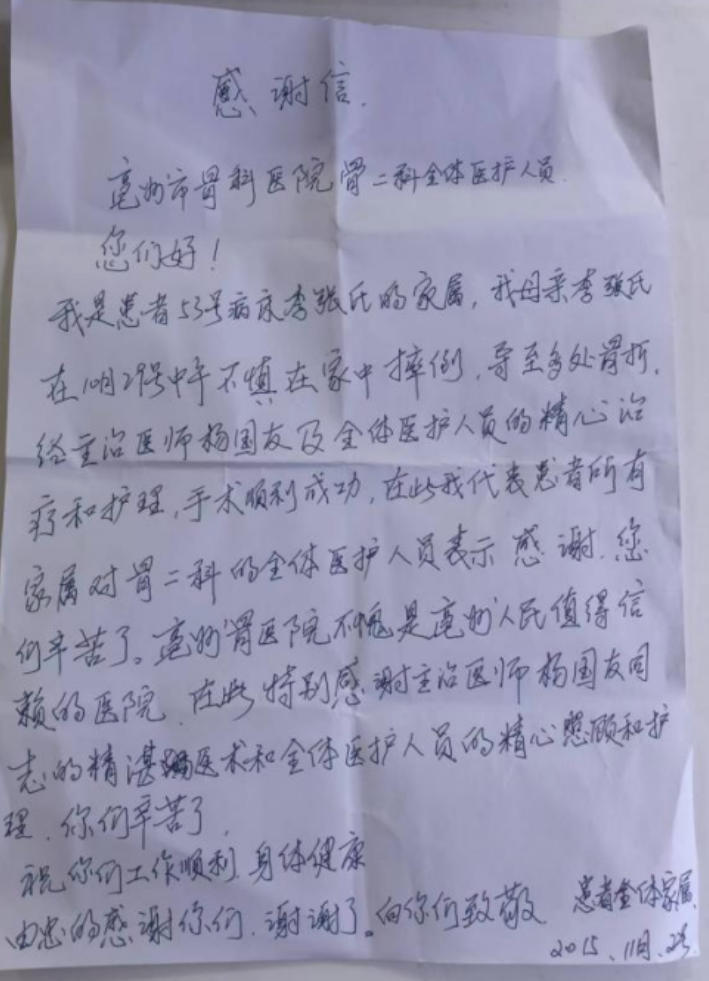 感谢信.
亳州市骨科医院骨二科全体医护人员.
您们好！
我是患者53号病床李张氏的家属，我母亲李张氏
在10月29号中午不慎在家中摔倒，导至多处骨折.
经主治医师杨国友及全体医护人员的精心治
疗和护理，手术顺利成功，在此我代表患者所有
家属对骨二科的全体医护人员表示感谢.您
们辛苦了。亳州骨医院不愧是亳州人民值得信
赖的医院.在此特别感谢主治医师杨国友同
志的精湛医术和全体医护人员的精心照顾和护
理.你们辛苦了，
祝你们工作顺利 身体健康
由忠的感谢你们，谢谢了。向你们致敬 患者全体家属.
2015、11月、